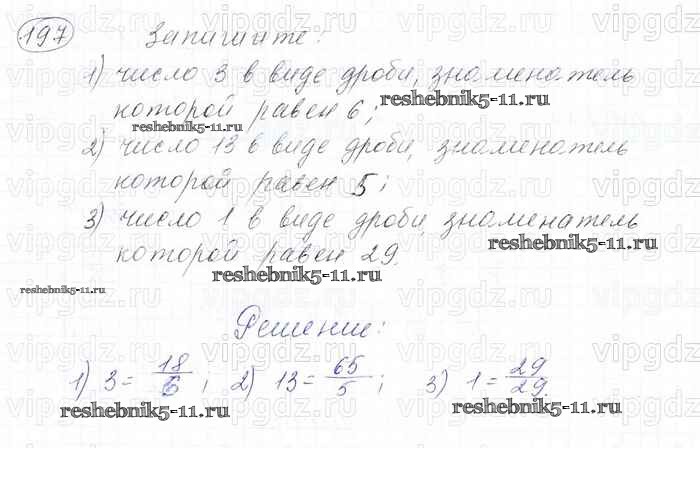 197 Запишите:
1) число 3 в виде дроби, знаменатель
которой равен 6;
reshebnik5-11.ru
reshebnik5-11.ru
2) число 13 в виде дроби, знаменатель
которой равен 5;
3) число 1 в виде дроби, знаменатель
которой равен 29.
reshebnik5-11.ru
reshebnik5-11.ru
reshebnik5-11.ru
Решение:
1) 3 = 18/6; 2) 13 = 65/5; 3) 1 = 29/29.
reshebnik5-11.ru
reshebnik5-11.ru
vipgdz.ru